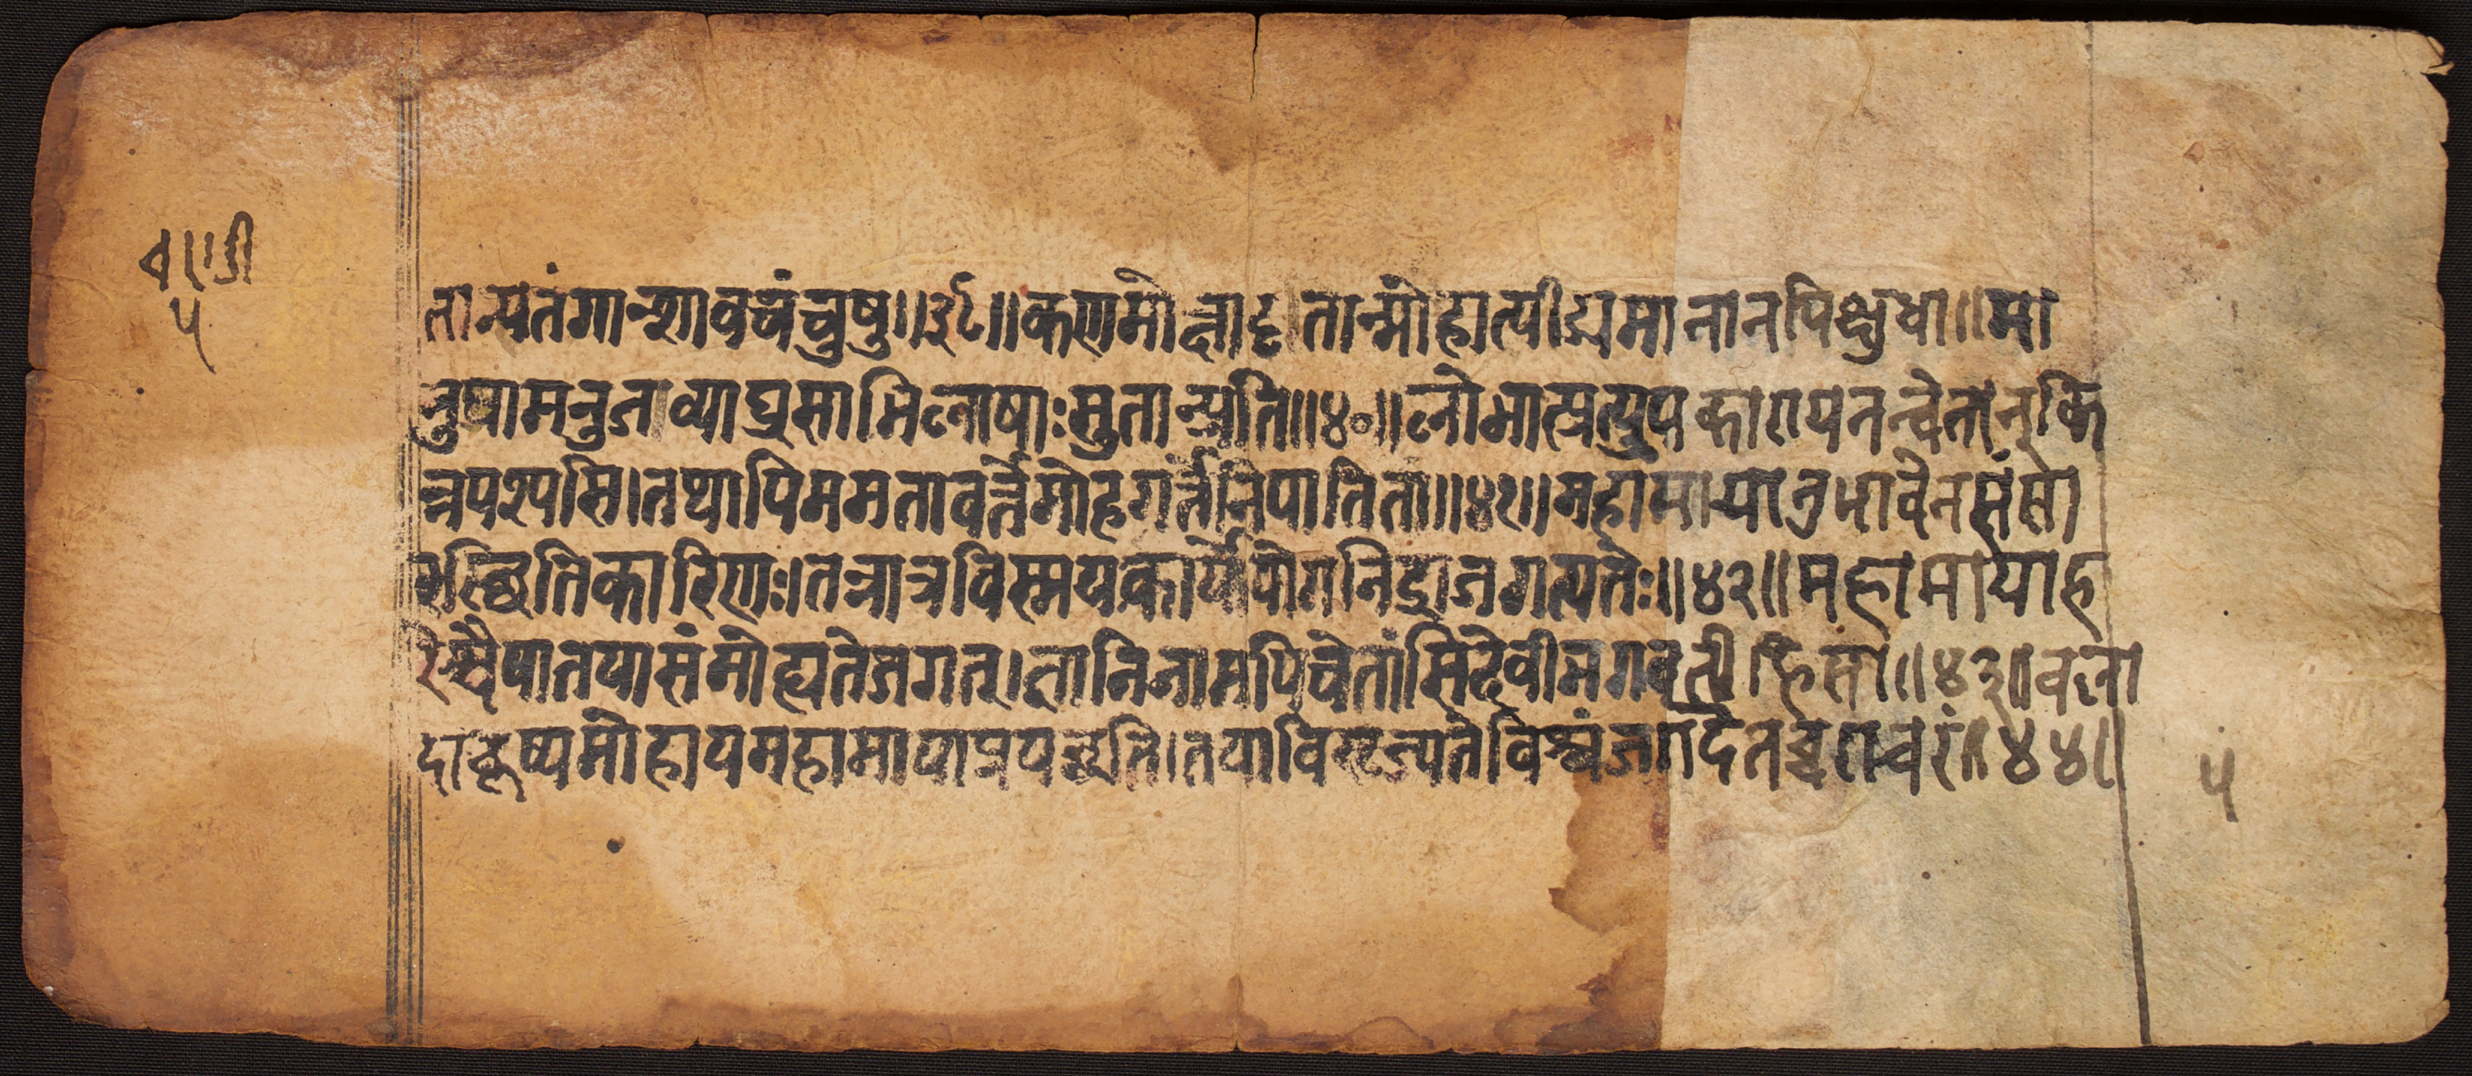 चण्डी
५
तान्पतंगान्शावचंचुषु॥३९॥कणमोक्षादृतान्मोहात्पीड्यमानानपिक्षुधा॥मा
नुषामनुजव्याघ्रसाभिलाषाःसुतान्प्रति॥४०॥लोभात्प्रत्युपकारायनन्वेतान्किं
न्नपश्यसि।तथापिममतावर्त्तेमोहगर्त्तेनिपातिता॥४१॥महामायानुभावेनसंसा
रस्थितिकारिणः।तन्नात्रविस्मयकार्योयोगनिद्राजगत्पतेः॥४२॥महामायाह
रेश्चैषातयासंमोह्यतेजगत्।ज्ञानिनामपिचेतांसिदेवीभगवतीहिसा॥४३॥बला
दाकृष्यमोहायमहामायाप्रयच्छति।तयाविसृज्यतेविश्वंजगदेतच्चराचरं॥४४॥
५